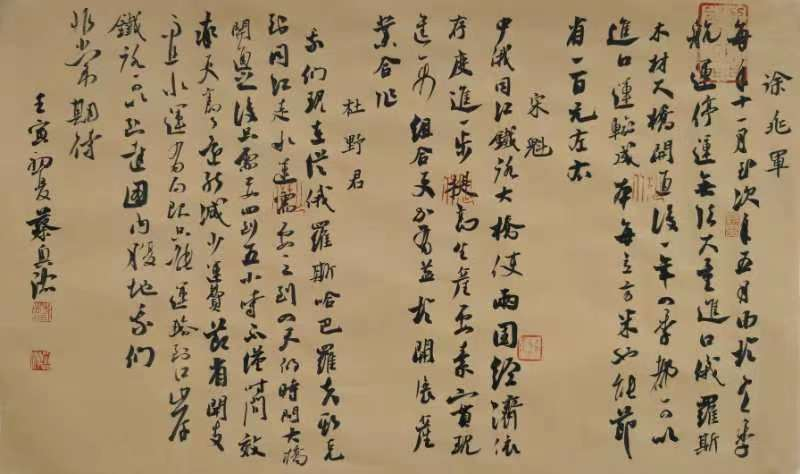 徐兆軍
每年十一月至次年五月由於冬季
航運停運無法大量進口俄羅斯
木材大橋開通後一年四季都可以
進口運輸成本每立方米也能節
省一百元左右
宋魁
中俄同江鐵路大橋使兩國經濟依
存度進一步提高生產要素實現
進一步組合更加有益於開展產
業合作
杜野君
我們現在從俄羅斯哈巴羅夫斯克
到同江走水運需要三到四天的時間大橋
開通後只需要四到五小時不僅時間效
率更高還能減少運費節省開支
而且水運有局限只能運輸到口岸
鐵路可以到達國內腹地我們
非常期待
壬寅初夏蔡